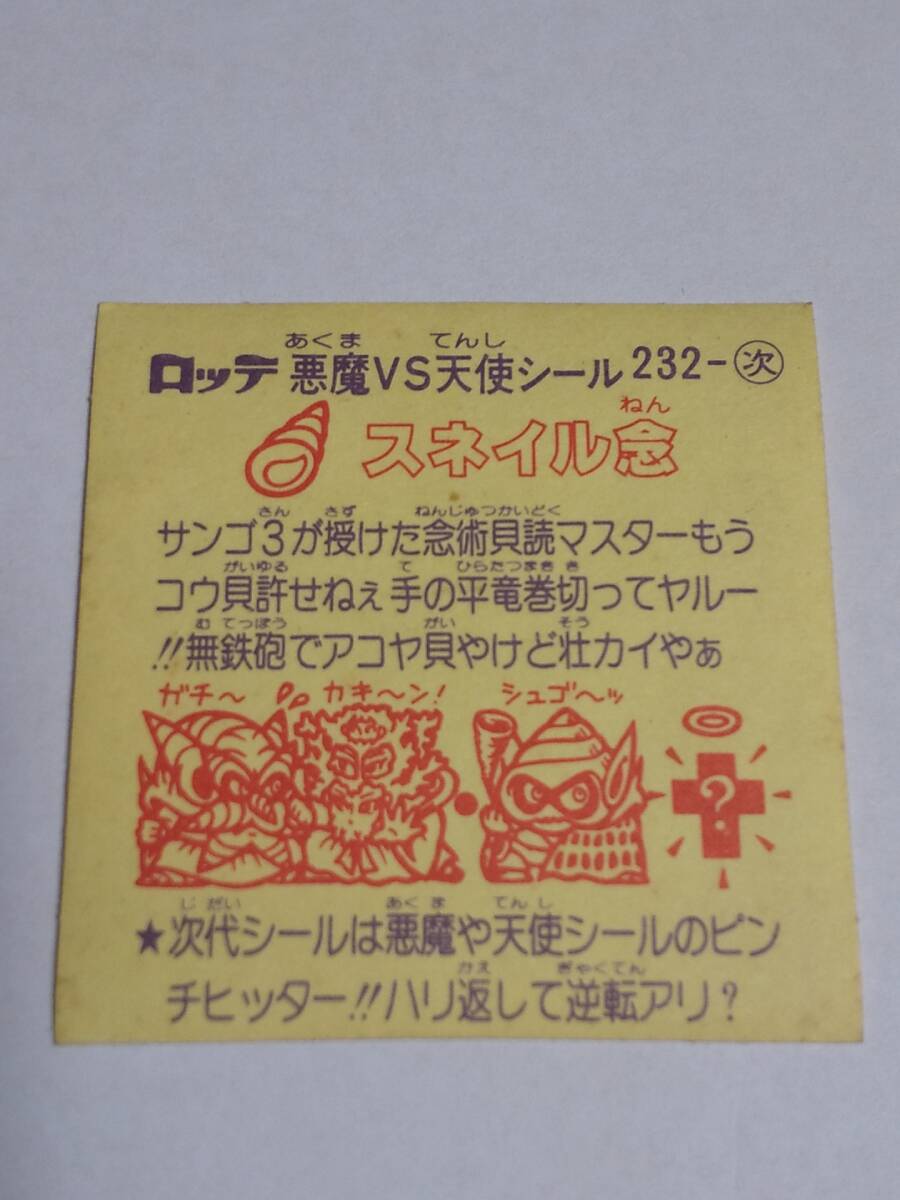 あくま てんし
ロッテ 悪魔VS天使シール 232-次
ねん
スネイル念
さん さず ねんじゅつかいどく
サンゴ3が授けた念術貝読マスターもう
がいゆる て ひらたつまき き
コウ貝許せねぇ手の平竜巻切ってヤルー
む てっぽう がい そう
!!無鉄砲でアコヤ貝やけど壮カイやぁ
ガチ〜 カキ〜ン! シュゴ〜ッ
?
じだい あくま てんし
★次代シールは悪魔や天使シールのピン
かえ ぎゃくてん
チヒッター!!ハリ返して逆転アリ?